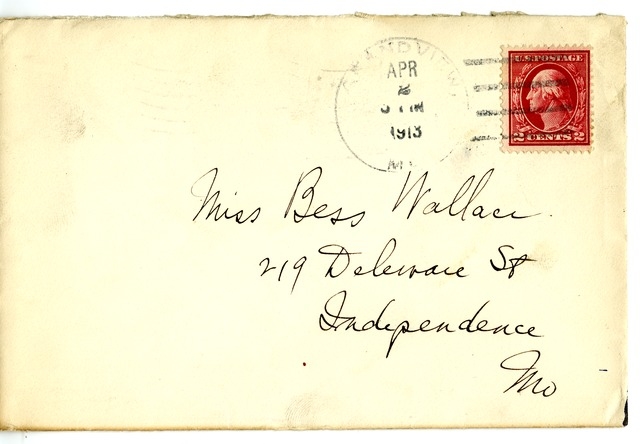 GRANDVIEW
APR
2
1913
MO.
U.S. POSTAGE
2 CENTS 2
Miss Bess Wallace.
219 Deleware St
Independence
Mo